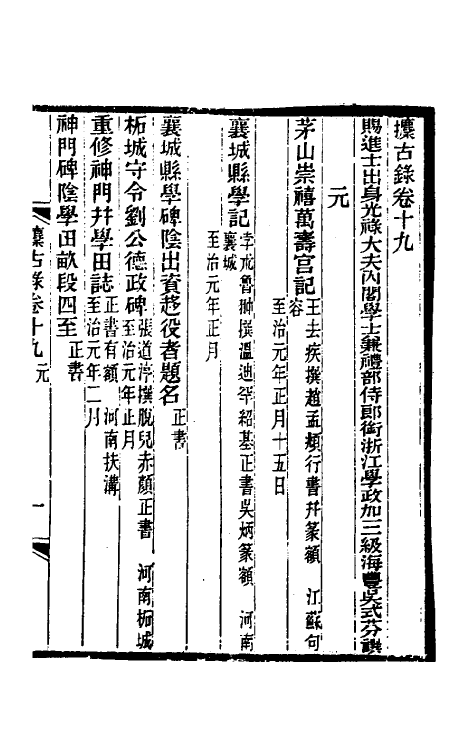 攗古錄卷十九
賜進士出身光祿大夫內閣學士兼禮部侍郎銜浙江學政加三級海豐吳式芬譔
元
茅山崇禧萬壽宮記
王去疾撰趙孟頫行書并篆額　江蘇句
容
至治元年正月十五日
襄城縣學記
李朮魯翀撰溫迪罕紹基正書吳炳篆額　河南
襄城
至治元年正月
襄城縣學碑陰出資趍役者題名
正書
柘城守令劉公德政碑
張道淳撰脫兒赤顏正書　河南柘城
至治元年正月
重修神門并學田誌
正書有額　河南扶溝
至治元年二月
神門碑陰學田畝段四至
正書
攗古錄卷十九　元
一